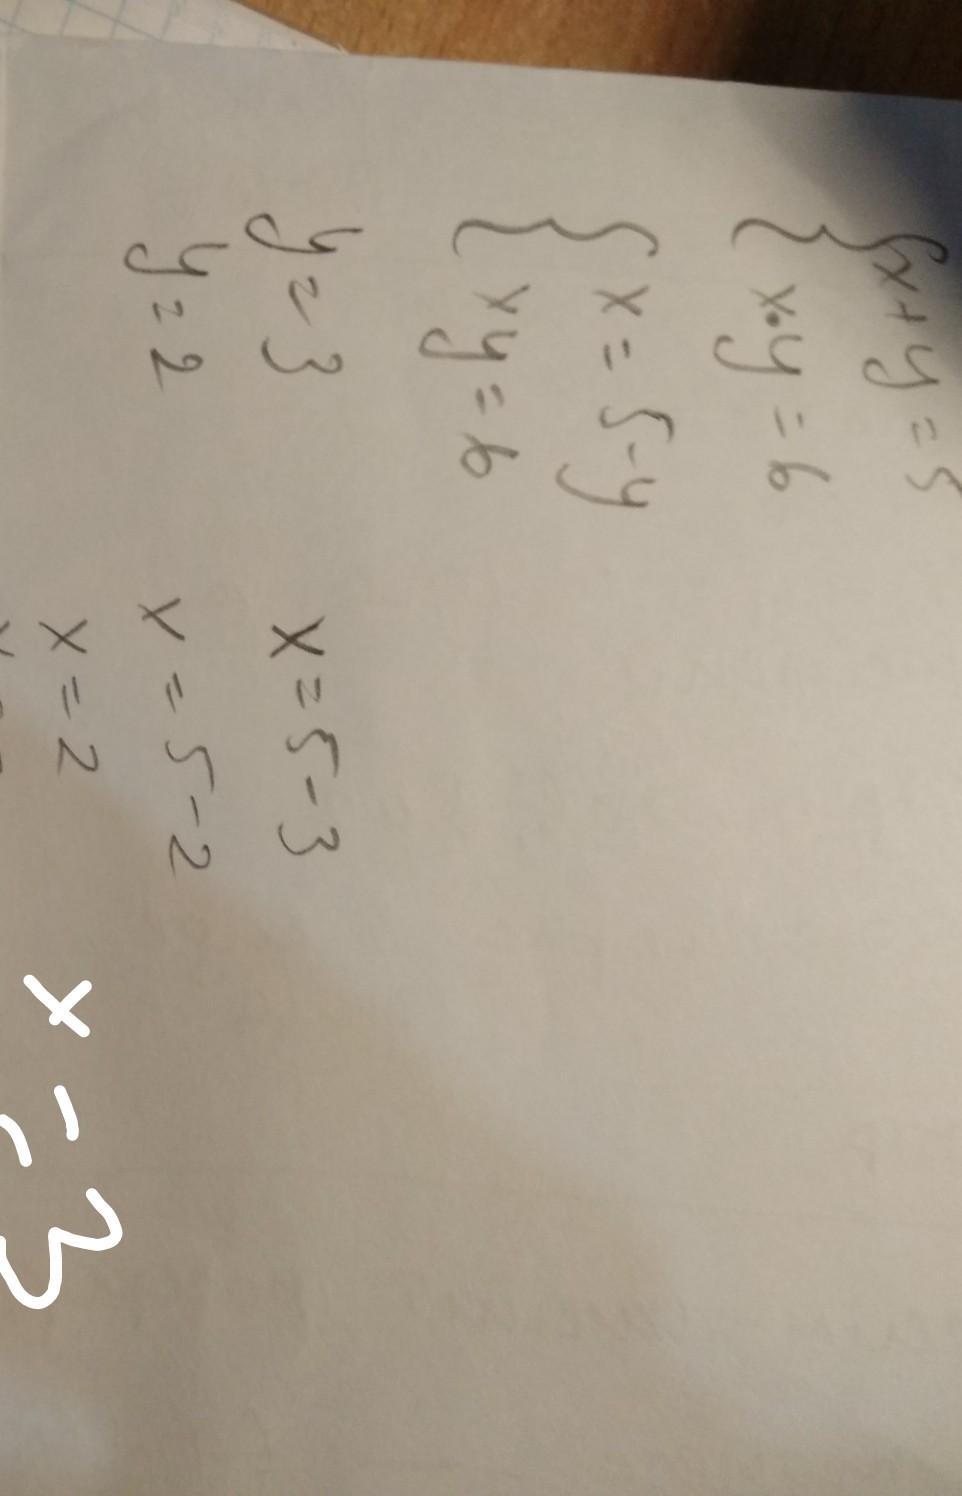 x + y = 5
x · y = 6
x = 5 - y
xy = 6
y = 3
y = 2
x = 5 - 3
x = 5 - 2
x = 2
x = 3